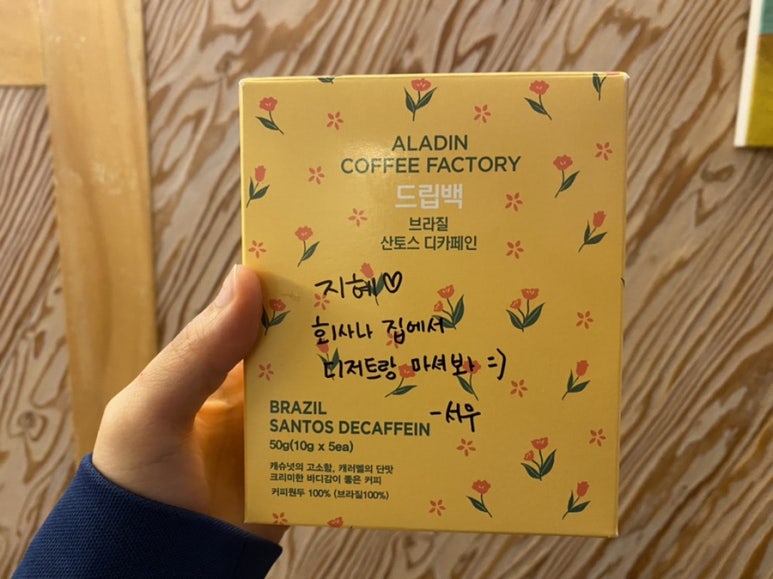 ALADIN
COFFEE FACTORY
드립백
브라질
산토스 디카페인
지혜♡
회사나 집에서
디저트랑 마셔봐 =)
-서우
BRAZIL
SANTOS DECAFFEIN
50g(10g x 5ea)
캐슈넛의 고소함, 캐러멜의 단맛
크리미한 바디감이 좋은 커피
커피원두 100% (브라질100%)